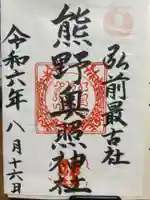 弘前最古社
熊野奥照神社
令和六年
八月十六日